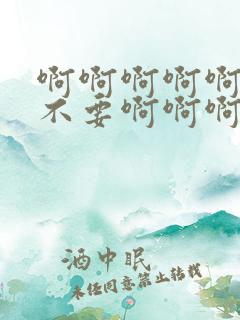 啊啊啊啊啊
不要啊啊啊
酒中眠
未经同意禁止转载